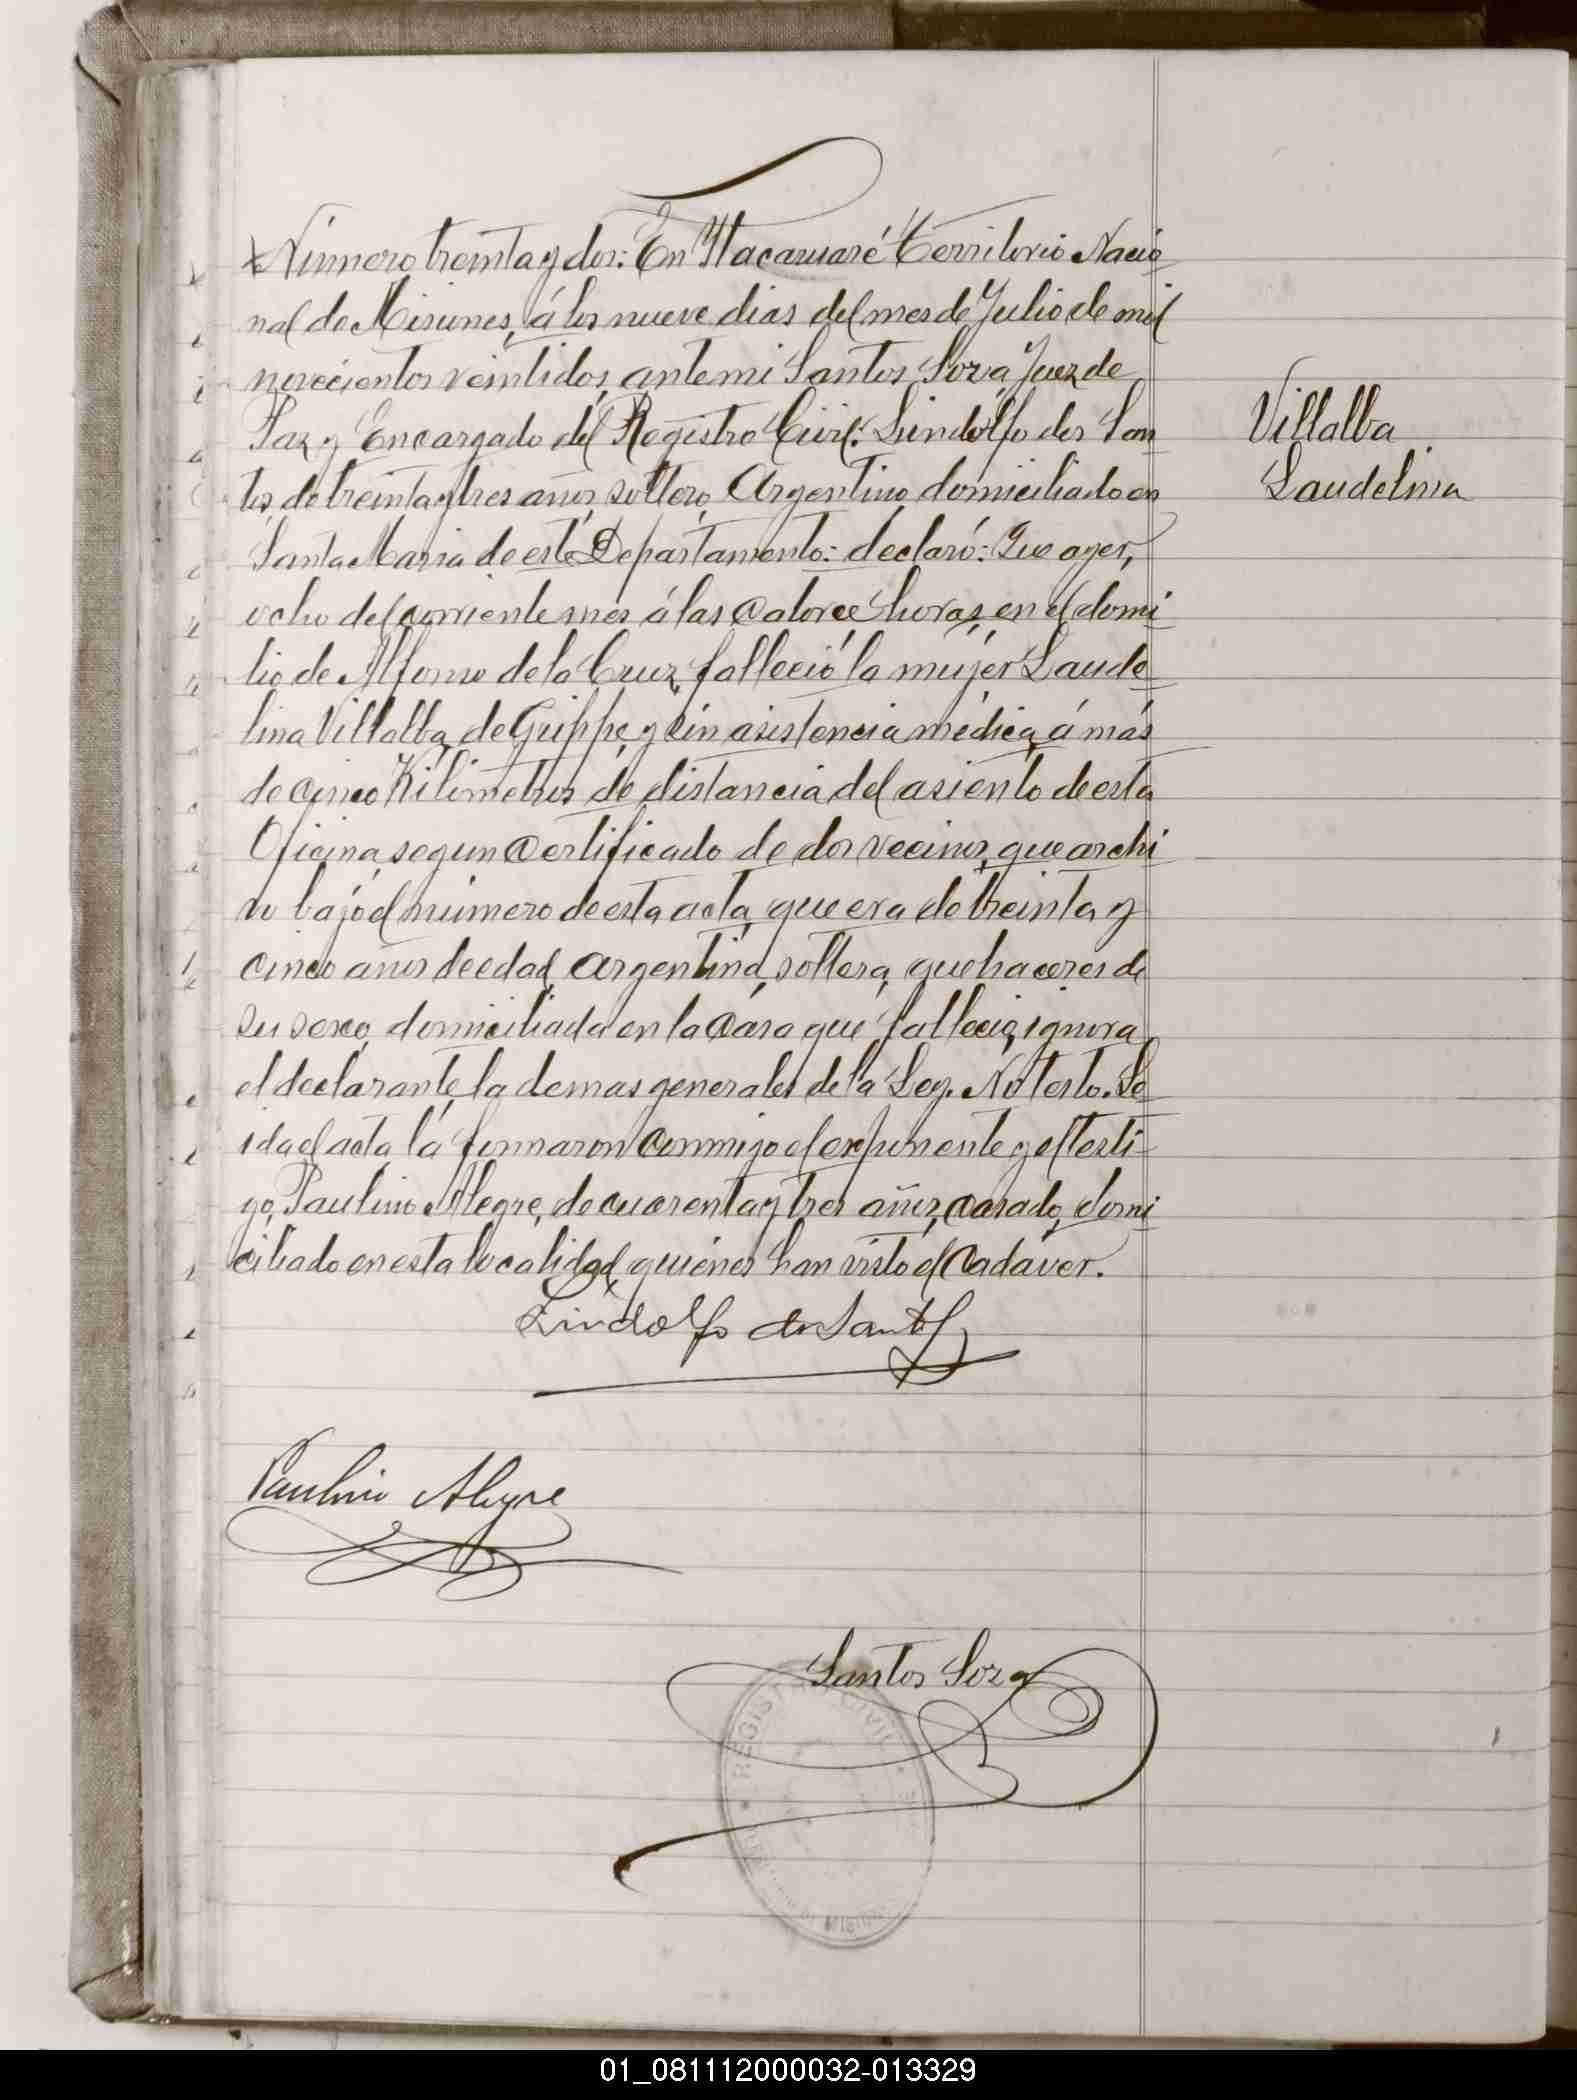 Número treinta y dos: En Itacaruaré Territorio Nacio
nal de Misiones, á los nueve dias del mes de Julio de mil
novecientos veintidos, ante mi Santos Soza, Juez de
Paz y Encargado del Registro Civil: Lindolfo dos San
tos, de treinta y tres años, soltero, Argentino, domiciliado en
Santa Maria de este Departamento: declaró: Que ayer,
ocho del corriente mes á las Catorce horas, en el domi
lio de Alfonso de la Cruz, falleció la mujer Laude
lina Villalba, de Grippe, y sin asistencia médica, á más
de cinco Kilómetros de distancia del asiento de esta
Oficina, segun Certificado de dos vecinos, que archi
vo bajo el número de esta acta, que era de treinta y
cinco años de edad, Argentina, soltera, quehaceres de
su sexo, domiciliada en la Casa que falleció, ignora
el declarante, la demas generales de la Ley. No testo. Le
ida el acta la firmaron Conmigo el exponente y el testi-
go, Paulino Alegre, de cuarenta y tres años, Casado, domi
ciliado en esta localidad, quiénes han visto el Cadáver.
Villalba
Laudelina
Lindolfo do Santos
Paulino Alegre
Santos Soza
REGISTRO CIVIL
01_081112000032-013329